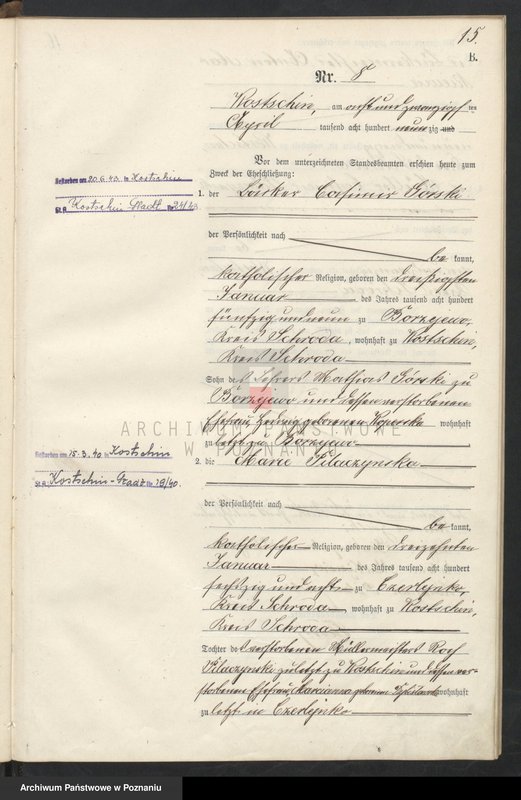 15.
B.
Nr. 8
Kostschin, am acht und zwanzigsten
April tausend acht hundert neunzig und
Vor dem unterzeichneten Standesbeamten erschien heute zum
Zweck der Eheschließung:
1. der Bäcker Casimir Górski
der Persönlichkeit nach
be kannt,
katholischer Religion, geboren den dreißigsten
Januar des Jahres tausend acht hundert
fünfzig und neun zu Borzejewo,
Kreis Schroda, wohnhaft zu Kostschin,
Kreis Schroda
Sohn des Lehrers Mathias Górski zu
Borzejewo und dessen verstorbenen
Ehefrau Hedwig geborenen wohnhaft
zu letzt zu Borzejewo
2. die Marie Pilaczynska
der Persönlichkeit nach
be kannt,
katholischer Religion, geboren den dreizehnten
Januar des Jahres tausend acht hundert
sechszig und acht zu Czerlejnko,
Kreis Schroda, wohnhaft zu Kostschin,
Kreis Schroda
Tochter des verstorbenen Müllermeisters Roch
Pilaczynski zuletzt zu Kostschin und dessen ver-
storbenen Ehefrau Marianna geborenen wohnhaft
zu letzt in Czerlejnko
Gestorben am 20.6.43 in Kostschin
St.A. Kostschin Stadt Nr. 24/43.
Gestorben am 15.3.40 in Kostschin
St.A. Kostschin-Stadt Nr. 19/40.
ARCHIWUM PAŃSTWOWE
W POZNANIU
Archiwum Państwowe w Poznaniu